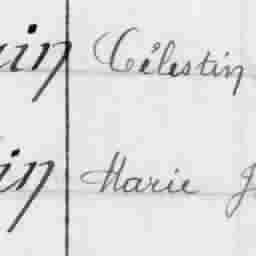 in Célestin
in Marie J